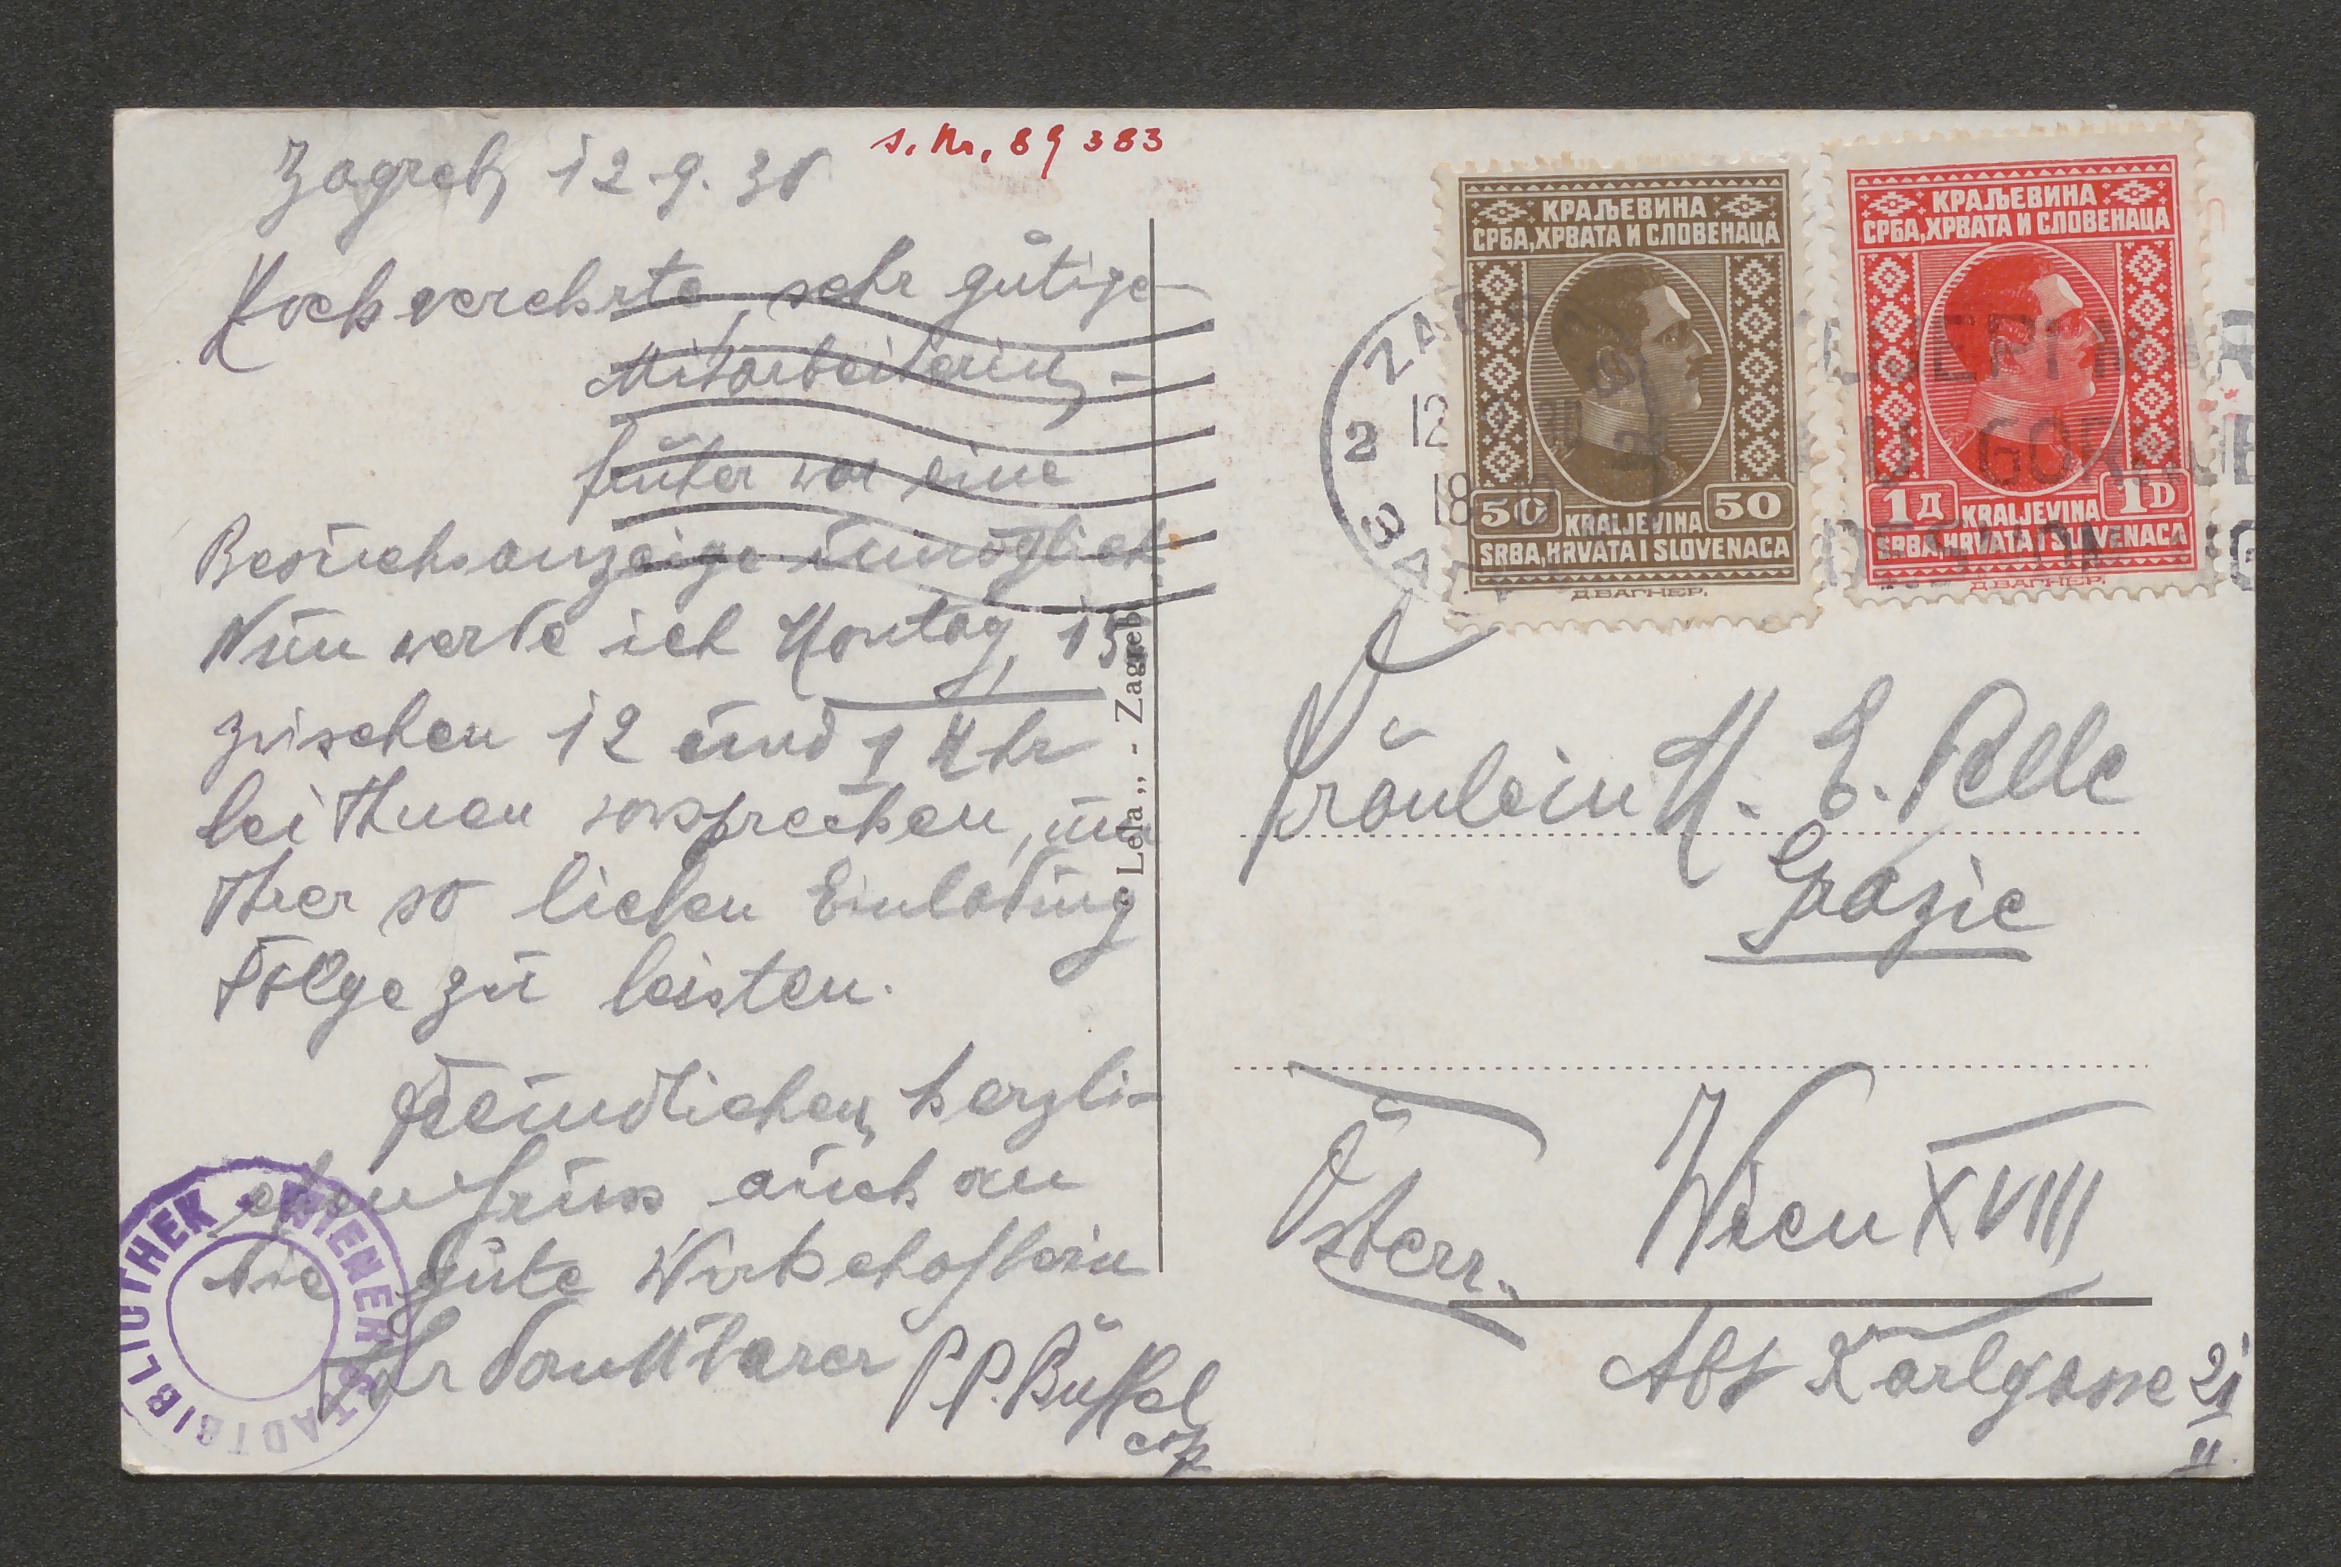 Zagreb, 12.9.30
s. Nr. 89383
Hochverehrte, sehr gütige
Mitarbeiterin, –
früher war eine
Besuchsanzeige unmöglich.
Nun werde ich Montag, 15.
zwischen 12 und 1 Uhr
bei Ihnen vorsprechen, um
Ihrer so lieben Einladung
Folge zu leisten.
Freundlichen, herzli-
chen Gruss auch an
die gute Wirtschafterin
Ihr dankbarer P. P. Büffel
„Lela„ - Zagreb
КРАЉЕВИНА
СРБА, ХРВАТА И СЛОВЕНАЦА
50 50
KRALJEVINA
SRBA, HRVATA I SLOVENACA
Д ВАГНЕР.
КРАЉЕВИНА
СРБА, ХРВАТА И СЛОВЕНАЦА
1Д 1D
KRALJEVINA
SRBA, HRVATA I SLOVENACA
Д ВАГНЕР.
2
12
18
Fräulein M. E. delle
Grazie
Österr.
Wien XVIII
Abt Karlgasse 21
II
WIENER STADTBIBLIOTHEK